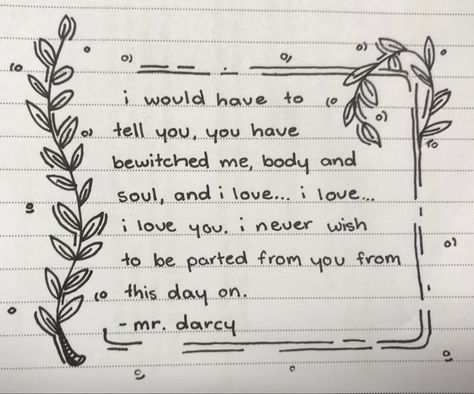 i would have to
tell you, you have
bewitched me, body and
soul, and i love... i love...
i love you. i never wish
to be parted from you from
this day on.
- mr. darcy